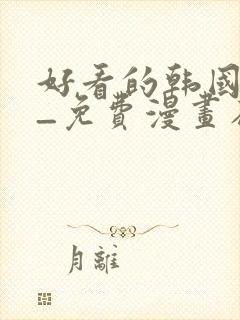 好看的韩國
—免費漫畫
月離